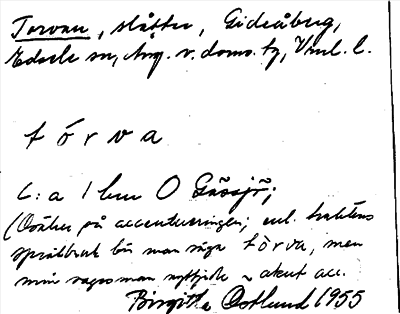 Torvan, slåtter, Gideåberg,
Edsele sn, Ång. v. doms. tg, Vnl. l.
tórva
C:a 1 km O Gåssjö;
(Osäker på accentueringen; enl. traktens
språkbruk bör man säga tòrva, men
min sagesman nyttjade ~ akut acc.
Birgitta Östlund 1955